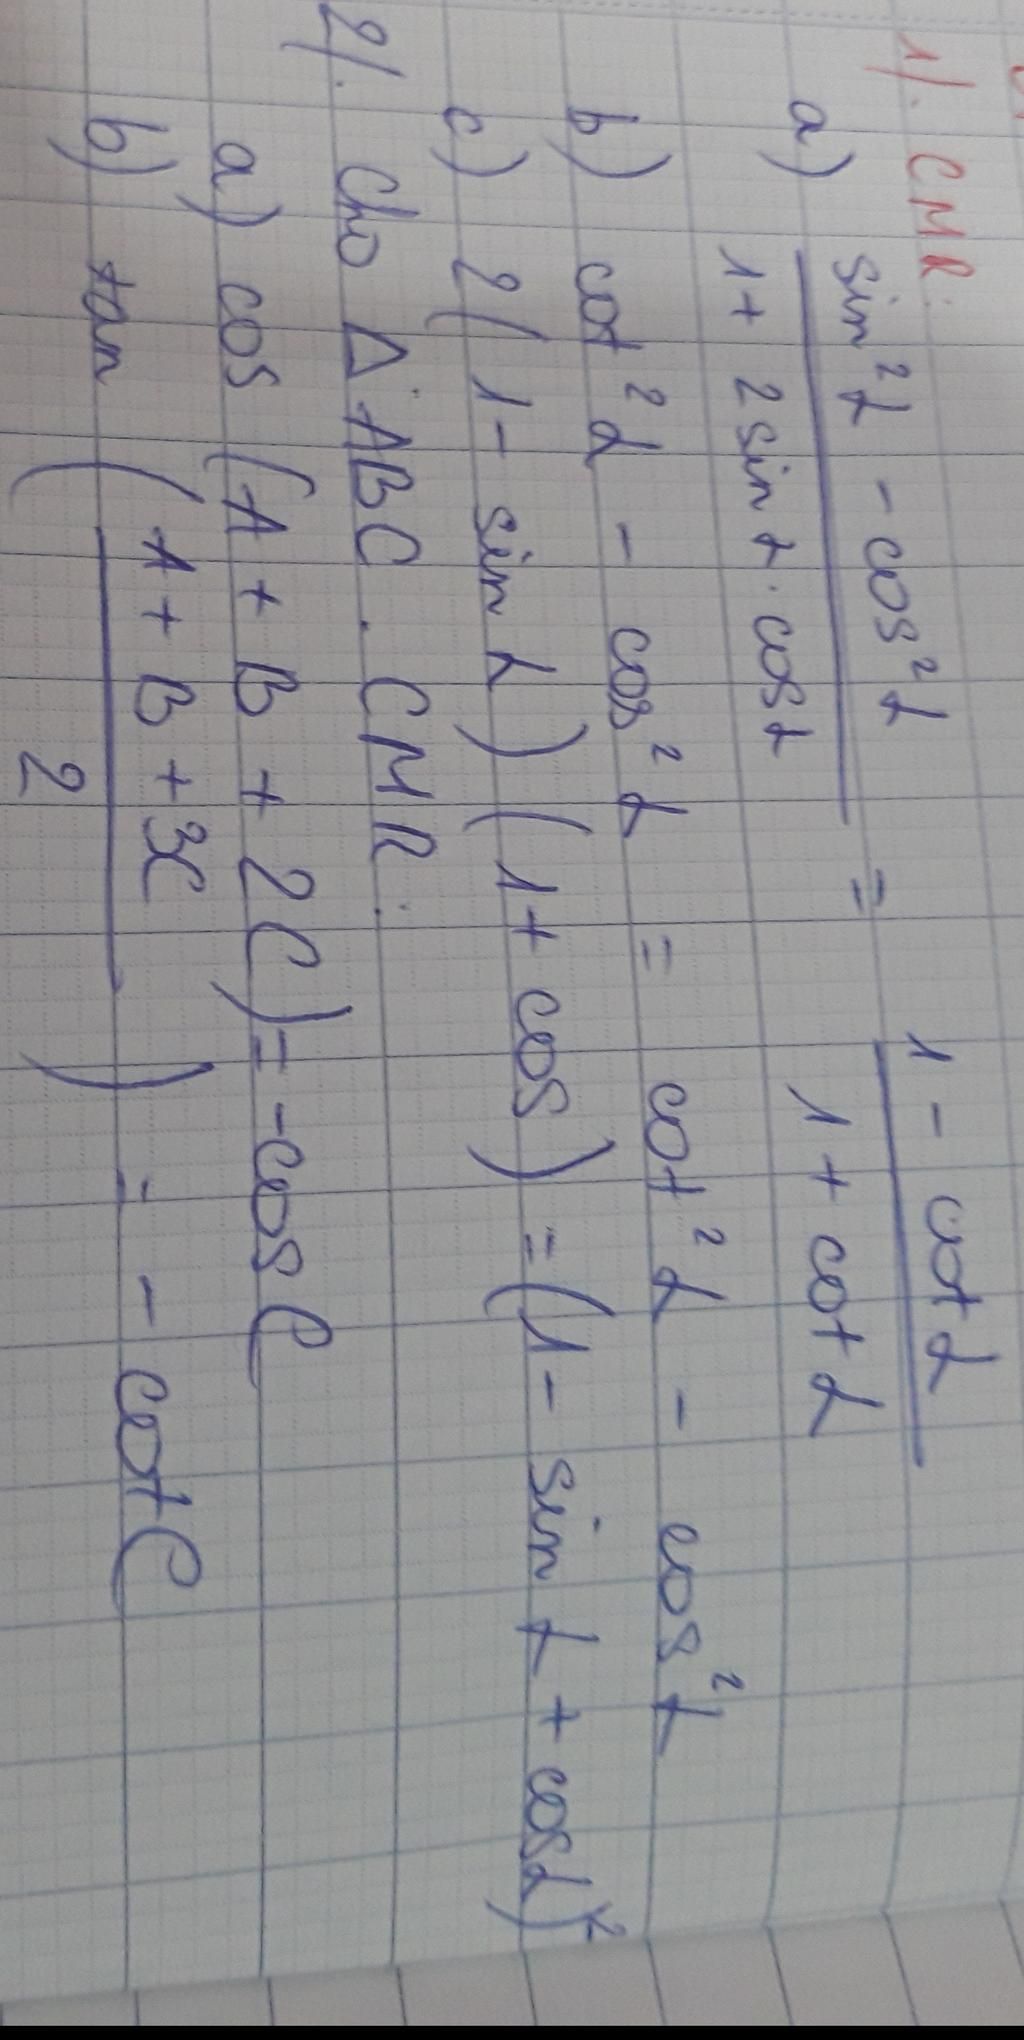 1/. CMR:
a) \frac{sin²α - cos²α}{1 + 2sinα.cosα} = \frac{1 - cotα}{1 + cotα}
b) cot²α - cos²α = cot²α - cos²α
c) 2(1 - sinα)(1 + cos) = (1 - sinα + cosα)²
2/. Cho ΔABC. CMR:
a) cos(A + B + 2C) = -cosC
b) tan(\frac{A + B + 3C}{2}) = - cotC